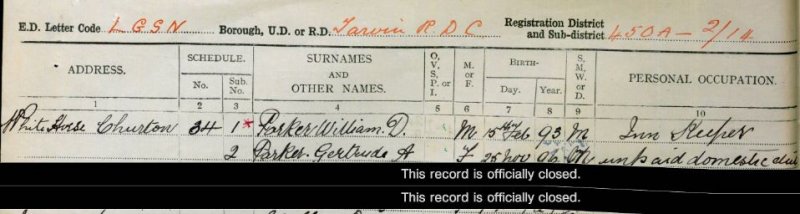 E.D. Letter Code LGSN Borough, U.D. or R.D. Tarvin R.D.C Registration District and Sub-district 450A - 2/14
ADDRESS. SCHEDULE. No. Sub. No. SURNAMES AND OTHER NAMES. O, V, S, P, or I. M. or F. BIRTH- Day. Year. S, M, W, or D. PERSONAL OCCUPATION.
1 2 3 4 5 6 7 8 9 10
White Horse Churton 34 1* Parker William. D. M 15th Feb 93 M Inn Keeper
2 Parker. Gertrude A F 25 Nov 96 M unpaid domestic
This record is officially closed.
This record is officially closed.